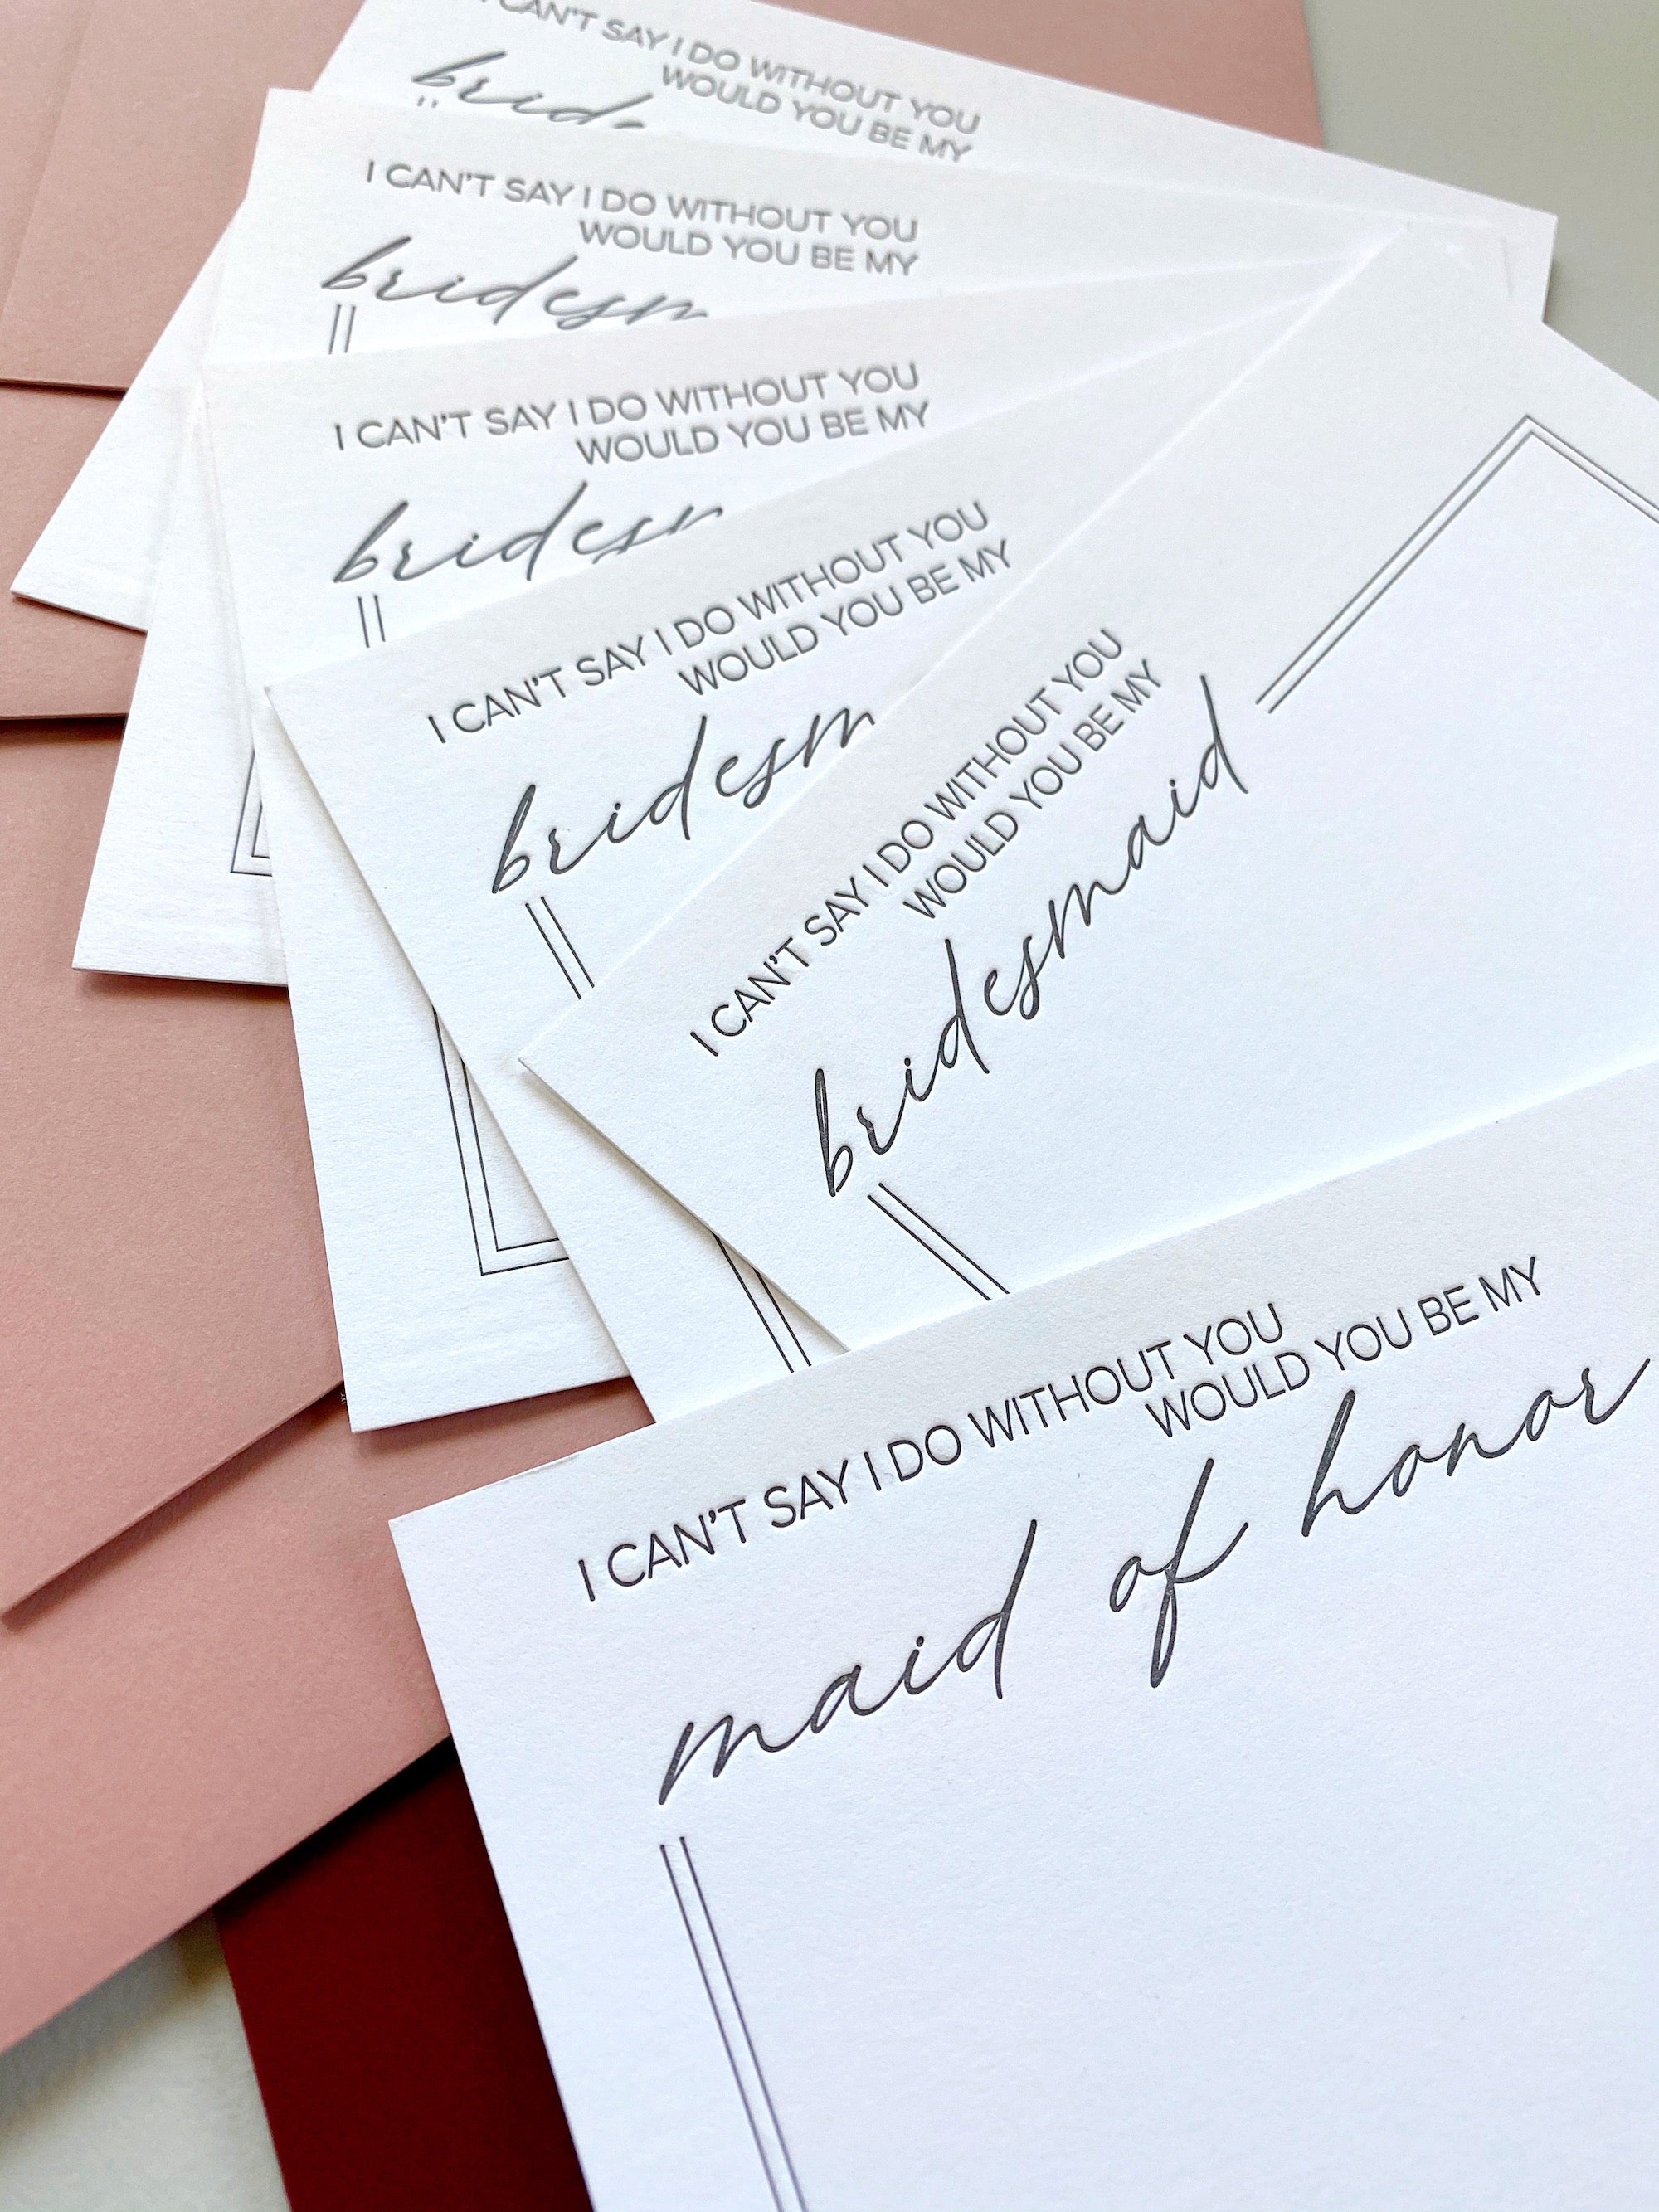 I CAN'T SAY I DO WITHOUT YOU
WOULD YOU BE MY
I CAN'T SAY I DO WITHOUT YOU
WOULD YOU BE MY
bridesm
I CAN'T SAY I DO WITHOUT YOU
WOULD YOU BE MY
bridesm
I CAN'T SAY I DO WITHOUT YOU
WOULD YOU BE MY
bridesm
I CAN'T SAY I DO WITHOUT YOU
WOULD YOU BE MY
bridesmaid
I CAN'T SAY I DO WITHOUT YOU
WOULD YOU BE MY
maid of honor